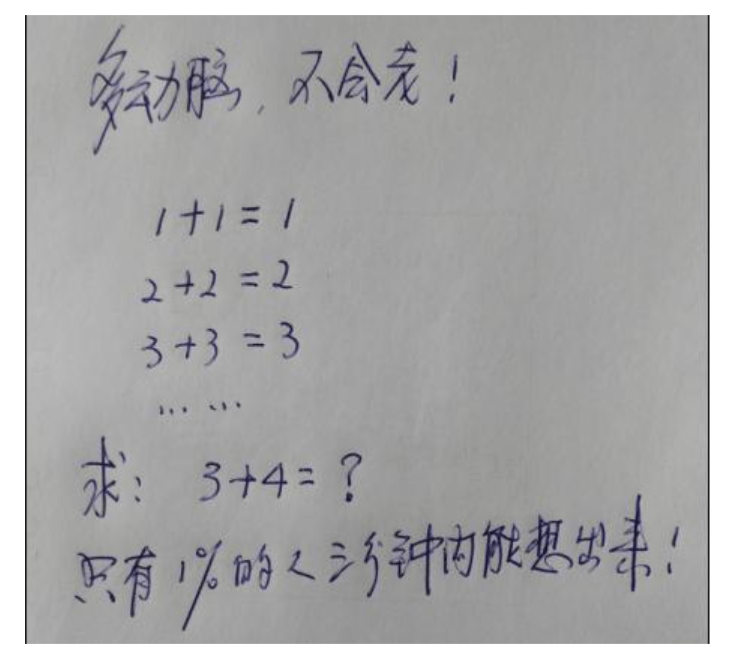 多动脑,不会老!
1+1=1
2+2=2
3+3=3
... ...
求: 3+4=?
只有1%的人三分钟内能想出来!